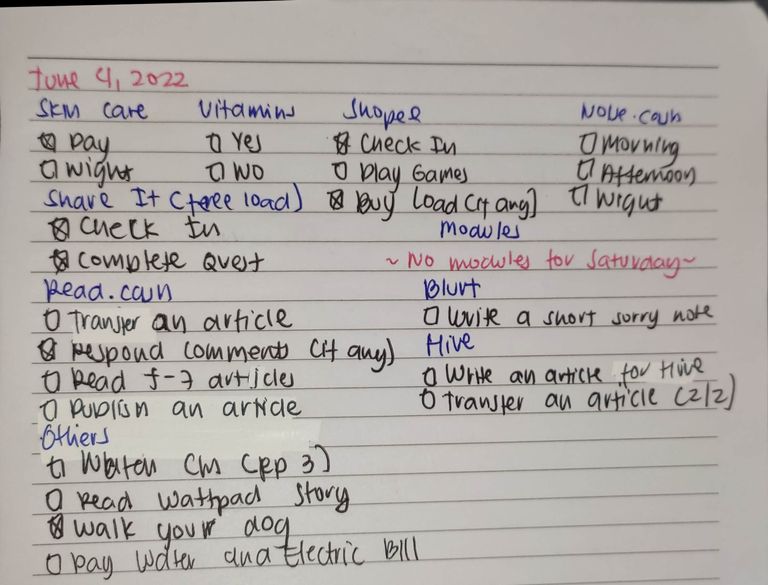 June 4, 2022
Skin care Vitamins Shopee Noise.cash
☒ Day ☐ Yes ☒ Check In ☐ Morning
☐ Night ☐ No ☐ Play Games ☐ Afternoon
Share It (free load) ☒ Buy load (if any) ☐ Night
☒ Check In Modules
☒ Complete Quest ~ No modules for Saturday ~
Read.cash Blurt
☐ Transfer an article ☐ Write a short sorry note
☒ Respond comments (if any) Hive
☐ Read 5-7 articles ☐ Write an article for Hive
☐ Publish an article ☐ Transfer an article (2/2)
Others
☐ Watch CM (Ep 3)
☐ Read Wattpad Story
☒ Walk your dog
☐ Pay Water and Electric Bill